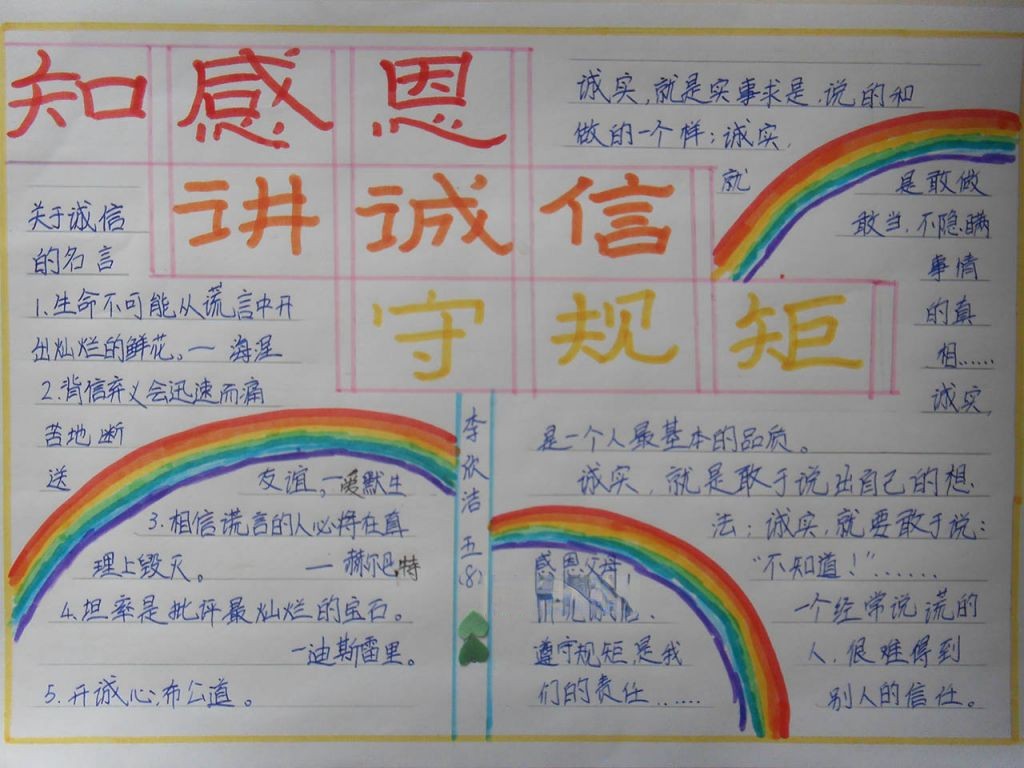 知感恩
讲诚信
守规矩
关于诚信
的名言
1.生命不可能从谎言中开
出灿烂的鲜花。— 海涅
2.背信弃义会迅速而痛
苦地断
送 友谊,—爱默生
3.相信谎言的人必将在真
理上毁灭。 — 赫尔巴特
4.坦率是批评最灿烂的宝石。
—迪斯雷里。
5.开诚心,布公道。
李欣洁 五(8)
诚实,就是实事求是,说的和
做的一个样;诚实,
就 是敢做
敢当,不隐瞒
事情
的真
相……
诚实,
是一个人最基本的品质。
诚实,就是敢于说出自己的想
法;诚实,就要敢于说:
“不知道!”…….
一个经常说谎的
人,很难得到
别人的信任。
感恩父母,
讲究诚信、
遵守规矩,是我
们的责任……